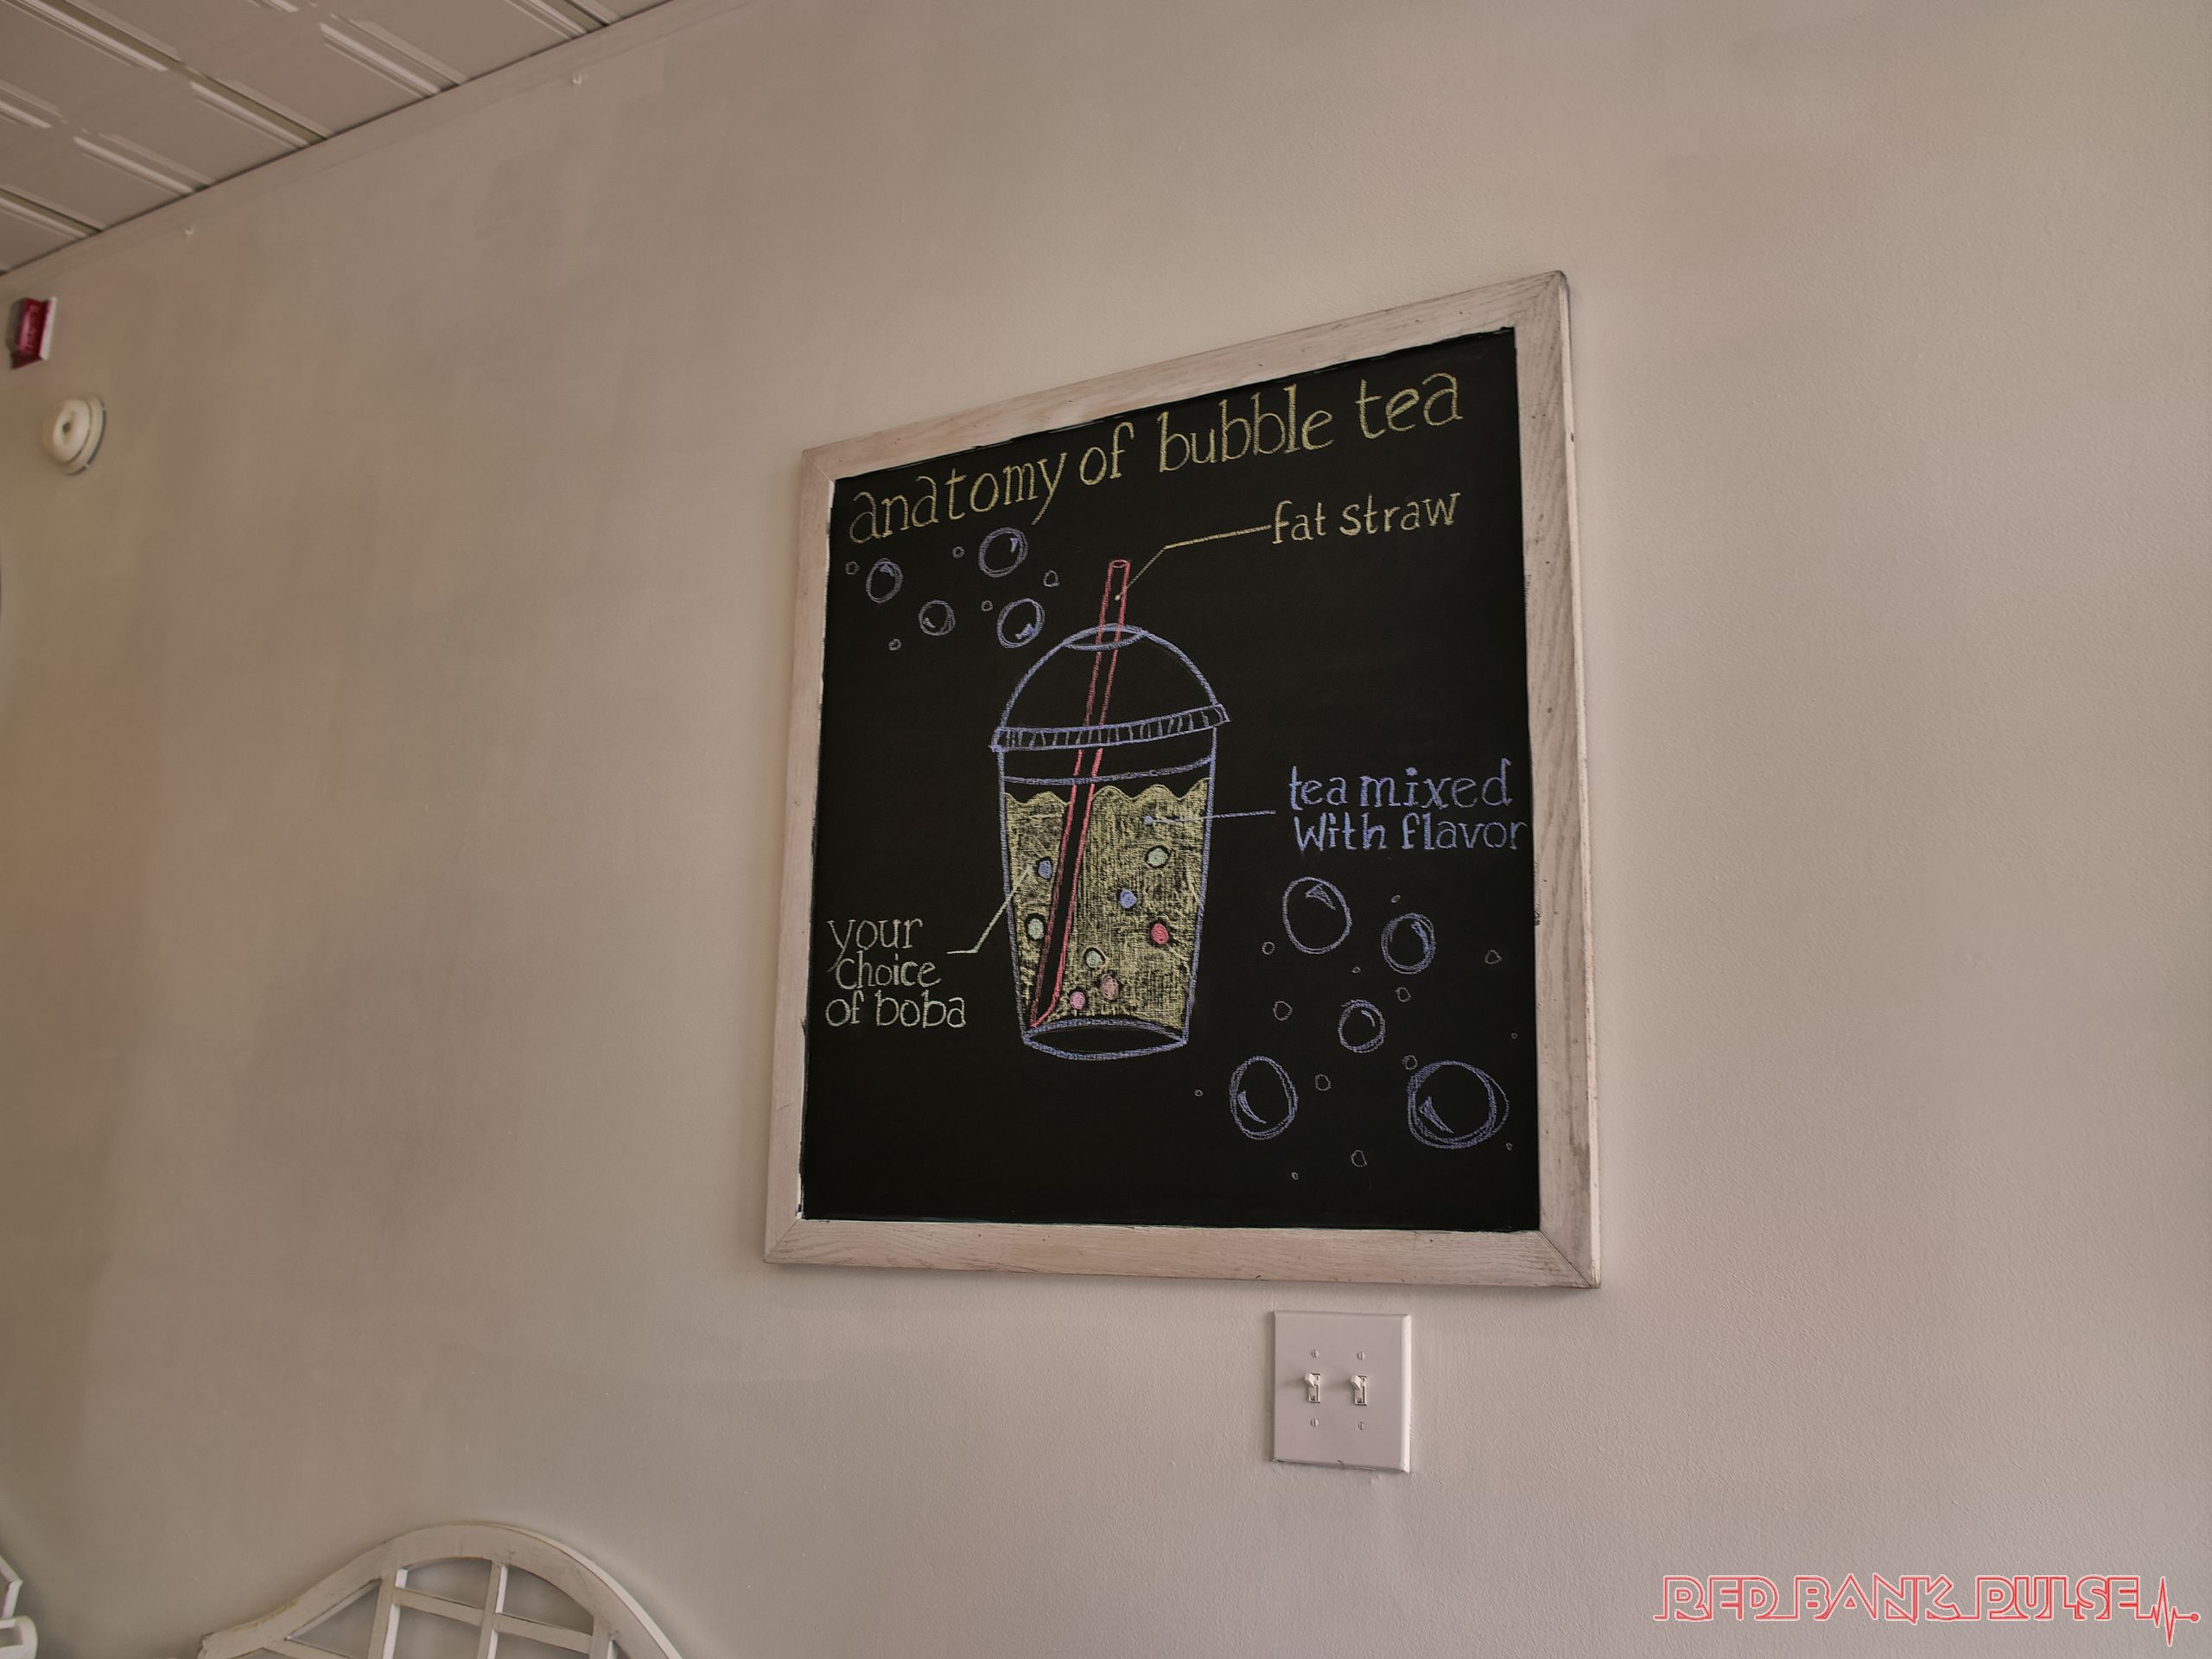 anatomy of bubble tea
fat straw
tea mixed
With flavor
your
choice
of boba
RED BANK PULSE